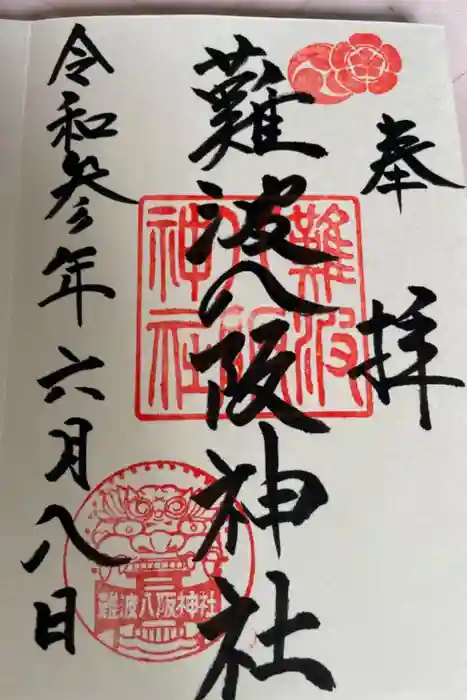 奉拝
難波八阪神社
難波八阪神社
令和参年六月八日
難波八阪神社